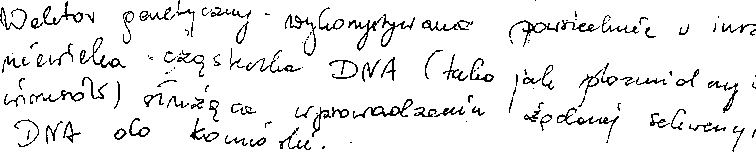 Wektor genetyczny - wykorzystywana powszechnie w inż
niewielka cząsteczka DNA (taka jak plazmidny i
wirusów) służąca wprowadzeniu żądanej sekwencji
DNA do komórki.